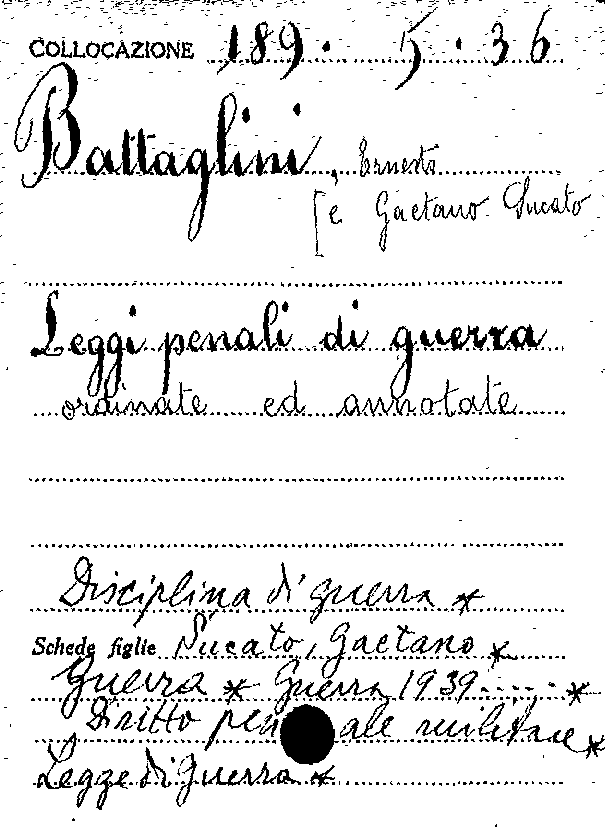 COLLOCAZIONE 189. 5. 36
Battaglini, Ernesto
[e Gaetano Sucato
Leggi penali di guerra
ordinate ed annotate
Disciplina di guerra *
Schede figlie Sucato, Gaetano *
Guerra * Guerra 1939.... *
Dritto penale militare *
Legge di Guerra *